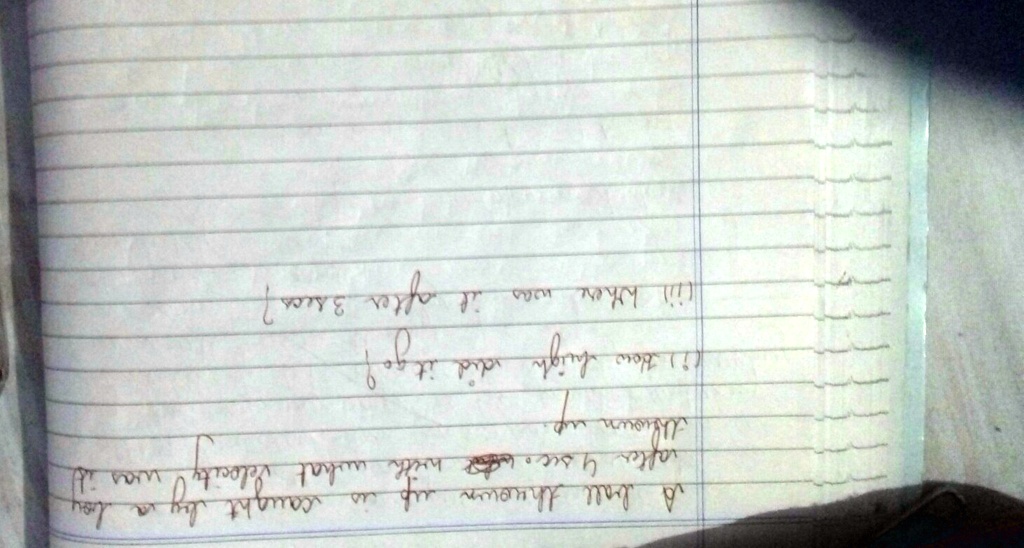 A ball thrown up is caught by a boy
after 4 sec. with what velocity was it
thrown up.
(i) How high did it go?
(ii) Where was it after 3 secs?